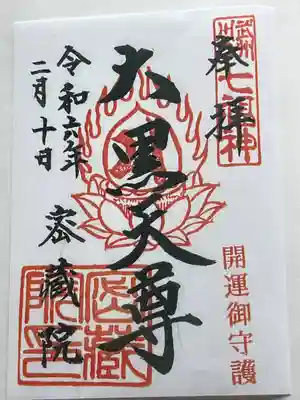 奉拝
武州川口
七福神
大黒天尊
開運御守護
令和六年
二月十日
密蔵院
密蔵院印